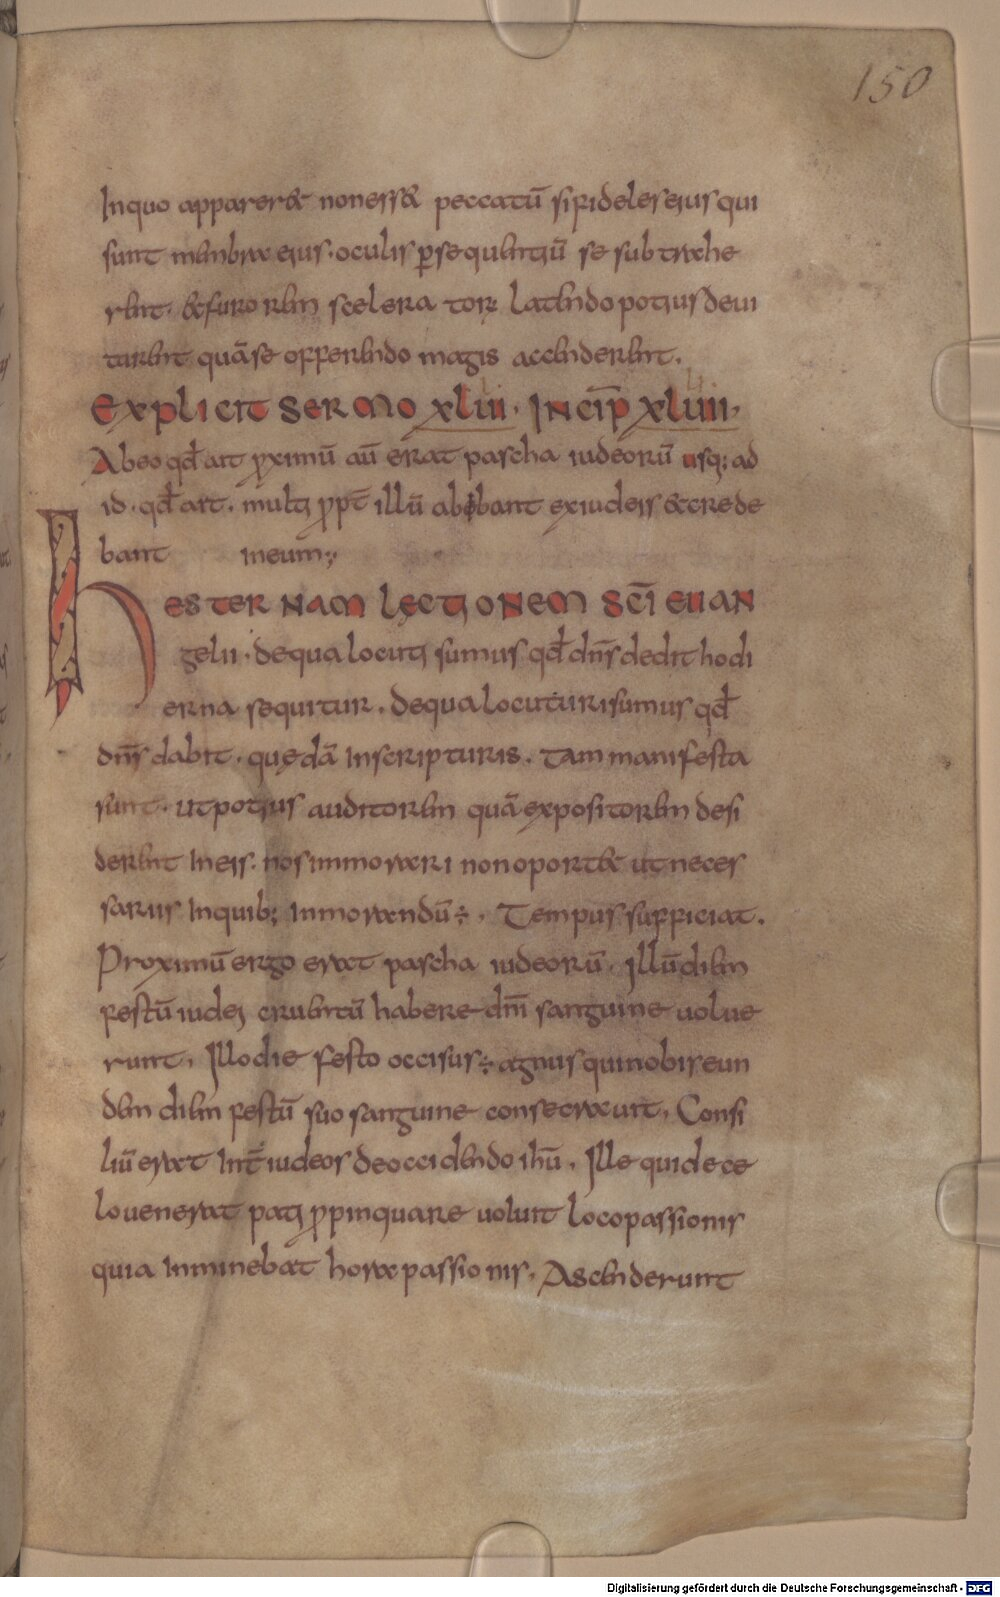 150
Inquo apparer& noness& peccatū si fideles eius qui
sunt membra eius · oculis p̱sequentiū se subtrahe
rent · &furorem sceleratorꝝ latendo potius deui
tarent quā se offerendo magis accenderent .
EXPLICIT SERMO XLIII · INCIP̄ XLIIII ·
Ab eo qđ ait ꝓximū aū erat pascha iudeorū usq; ad
id · qđ ait · multi ꝓpt̄ illū abibant ex iudeis &crede
bant in eum ;
HESTERNAM LECTIONEM SC̄I EUAN
gelii · de qua locuti sumus qđ dn̄s dedit hodi
erna sequitur . De qua locuturi sumus qđ
dn̄s dabit · quędā In scripturis . tam manifesta
sunt · ut potius auditorem quā expositorem desi
derent In eis · nos immorari non oport& ut neces
sariis In quib; Inmorandū ÷ . Tempus sufficiat .
Proximū ergo erat pascha iudeorū . Illū diem
festū iudei cruentū habere dn̄i sanguine uolue
runt . Illo die festo occisus ÷ agnus qui nobis eun
dem diem festū suo sanguine consecrauit . Consi
liū erat Int̄ iudeos de occidendo ihū . Ille qui de ce
lo uenerat pati ꝓpinquare uoluit loco passionis
quia Inminebat hora passionis . Ascenderunt
Digitalisierung gefördert durch die Deutsche Forschungsgemeinschaft - DFG